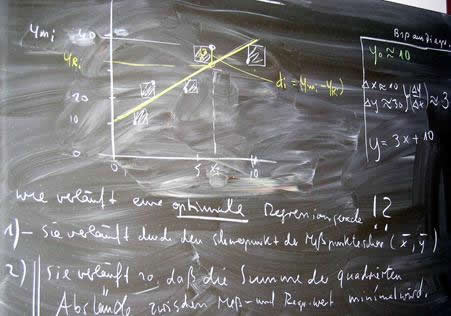 Bsp aus Diagr.
ymi 40
y0 ≈ 10
yRi
di = (ymi - yRi)
Δx ≈ 10
Δy ≈ 30 (Δy/Δx) ≈ 3
20
10
y = 3x + 10
0
0 5 xi 10
wie verläuft eine optimale Regressionsgerade !?
1) - sie verläuft durch den Schwerpunkt der Meßpunkteschar (x̄, ȳ)
2) sie verläuft so, daß die Summe der quadrierten
Abstände zwischen Meß- und Regr. wert minimal wird.